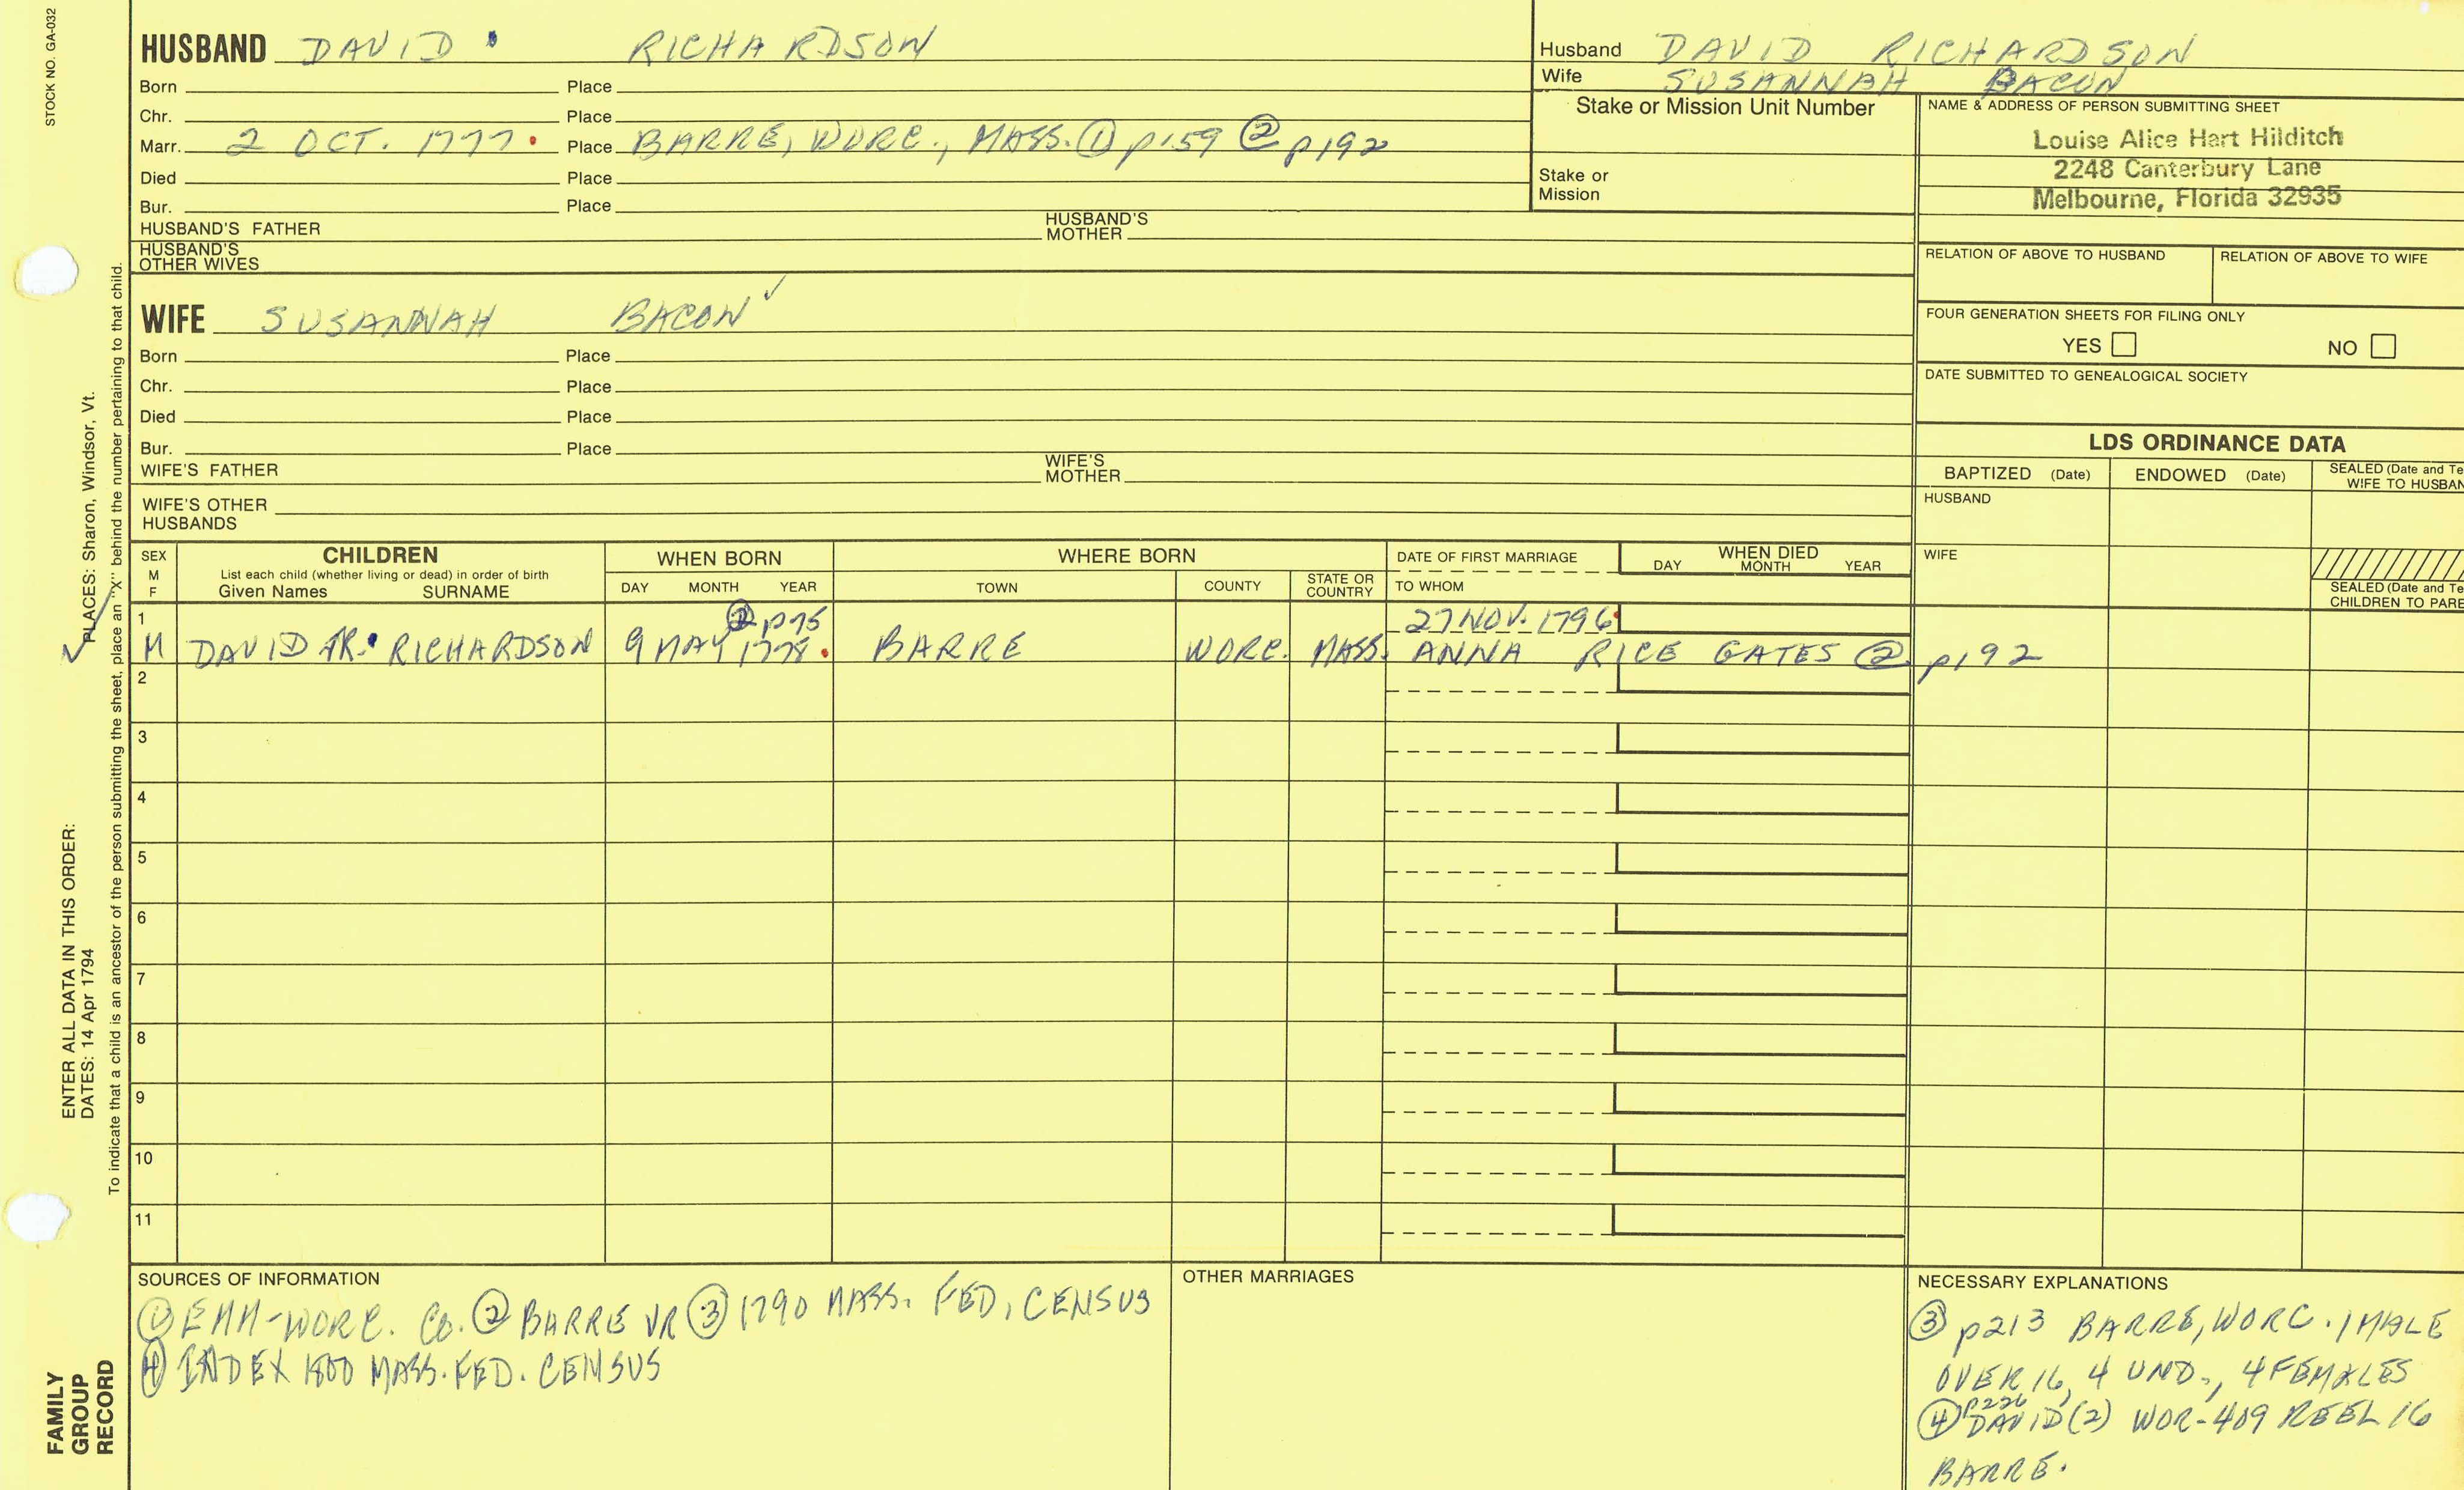 STOCK NO. GA-032
HUSBAND DAVID RICHARDSON
Born Place
Chr. Place
Marr. 2 OCT. 1777. Place BARRE, WORC., MASS. ① p159 ② p192
Died Place
Bur. Place
HUSBAND'S FATHER HUSBAND'S MOTHER
HUSBAND'S OTHER WIVES
Husband DAVID RICHARDSON
Wife SUSANNAH BACON
Stake or Mission Unit Number
Stake or
Mission
NAME & ADDRESS OF PERSON SUBMITTING SHEET
Louise Alice Hart Hilditch
2248 Canterbury Lane
Melbourne, Florida 32935
RELATION OF ABOVE TO HUSBAND RELATION OF ABOVE TO WIFE
FOUR GENERATION SHEETS FOR FILING ONLY
YES NO
DATE SUBMITTED TO GENEALOGICAL SOCIETY
WIFE SUSANNAH BACON ✓
Born Place
Chr. Place
Died Place
Bur. Place
WIFE'S FATHER WIFE'S MOTHER
WIFE'S OTHER
HUSBANDS
LDS ORDINANCE DATA
BAPTIZED (Date) ENDOWED (Date) SEALED (Date and Te
WIFE TO HUSBAN
HUSBAND
WIFE
SEALED (Date and Te
CHILDREN TO PARE
SEX
M
F
CHILDREN
List each child (whether living or dead) in order of birth
Given Names SURNAME
WHEN BORN
DAY MONTH YEAR
WHERE BORN
TOWN COUNTY STATE OR COUNTRY
DATE OF FIRST MARRIAGE
TO WHOM
WHEN DIED
DAY MONTH YEAR
1 ② p75 27 NOV. 1796
M DAVID JR. RICHARDSON 9 MAY 1778. BARRE WORC. MASS. ANNA RICE GATES ② p192
2
3
4
5
6
7
8
9
10
11
SOURCES OF INFORMATION
① EMM-WORC. CO. ② BARRE VR ③ 1790 MASS. FED. CENSUS
④ INDEX 1800 MASS. FED. CENSUS
OTHER MARRIAGES
NECESSARY EXPLANATIONS
③ p213 BARRE, WORC. 1 MALE
OVER 16, 4 UND., 4 FEMALES
p226
④ DAVID (2) WOR-409 REEL 16
BARRE.
ENTER ALL DATA IN THIS ORDER:
DATES: 14 Apr 1794
✓ PLACES: Sharon, Windsor, Vt.
To indicate that a child is an ancestor of the person submitting the sheet, place an "X" behind the number pertaining to that child.
FAMILY
GROUP
RECORD